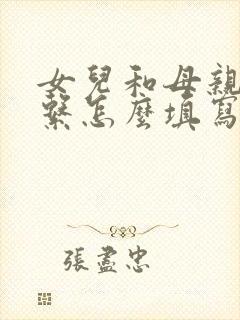 女兒和母親
繫怎麼填寫
張盡忠